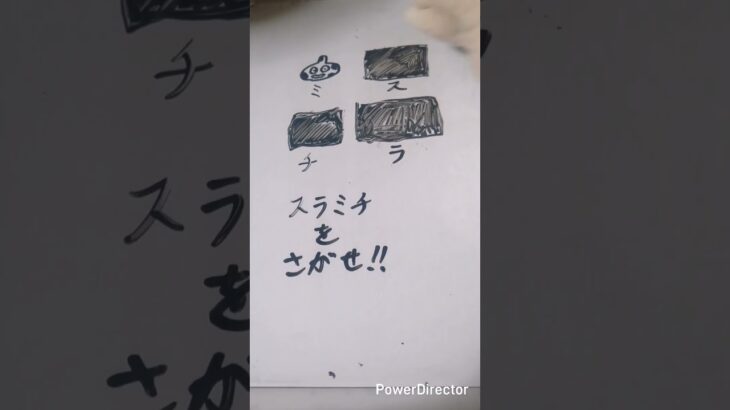 ミ
ス
チ
ラ
スラミチ
を
さがせ!!
PowerDirector